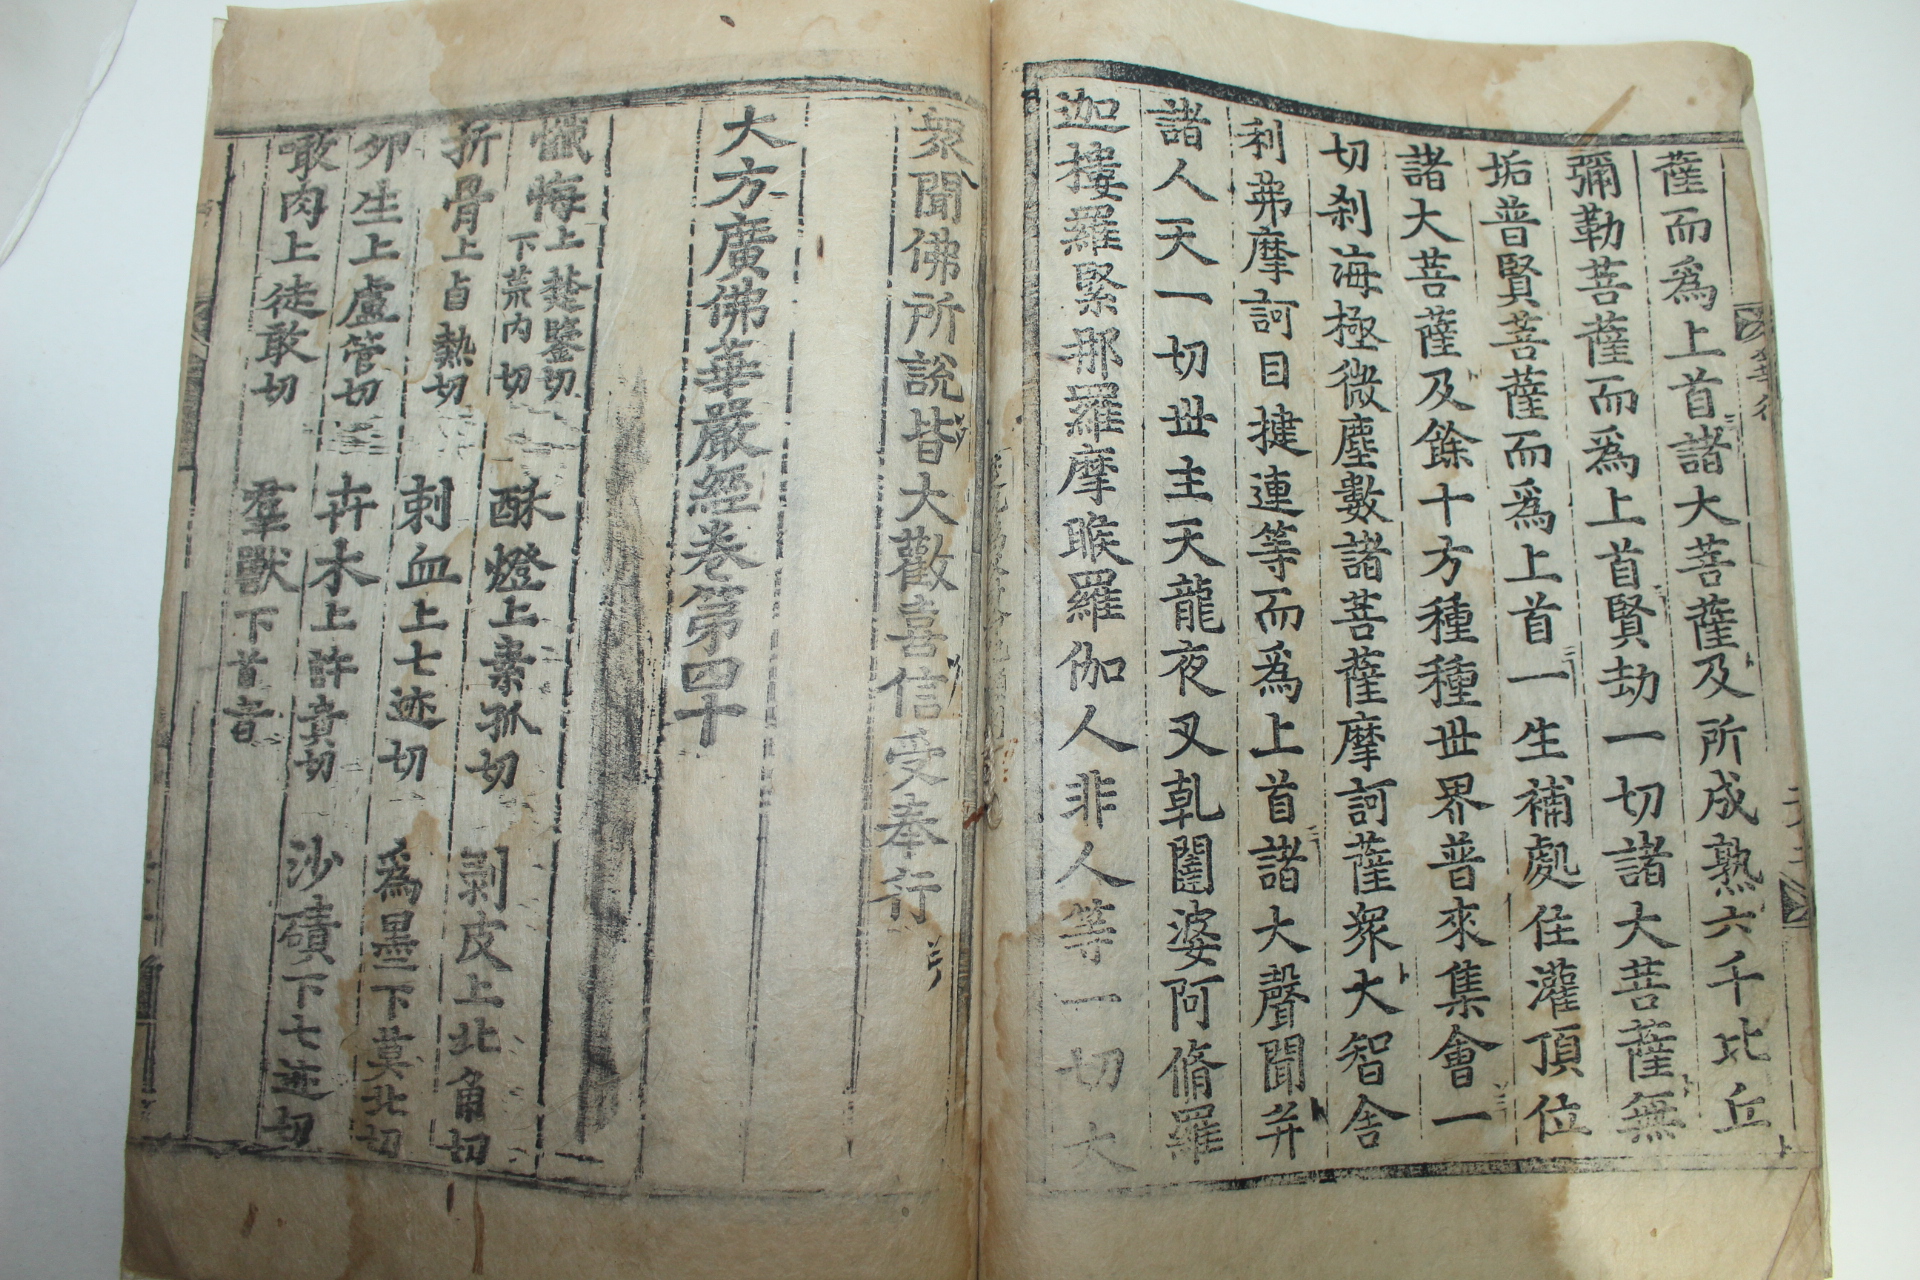 薩而爲上首諸大菩薩及所成熟六千比丘
彌勒菩薩而爲上首賢劫一切諸大菩薩無
垢普賢菩薩而爲上首一生補處住灌頂位
諸大菩薩及餘十方種種世界普來集會一
切刹海極微塵數諸菩薩摩訶薩衆大智舍
利弗摩訶目揵連等而爲上首諸大聲聞并
諸人天一切世主天龍夜叉乹闥婆阿脩羅
迦樓羅緊那羅摩睺羅伽人非人等一切大
衆聞佛所說皆大歡喜信受奉行
大方廣佛華嚴經卷第四十
懺悔上楚鑒切下荒内切 酥燈上素孤切 剥皮上北角切
折骨上旨熱切 刺血上七迹切 爲墨下莫北切
卵生上盧管切 卉木上許貴切 沙磧下七迹切
敢肉上徒敢切 羣獸下首音